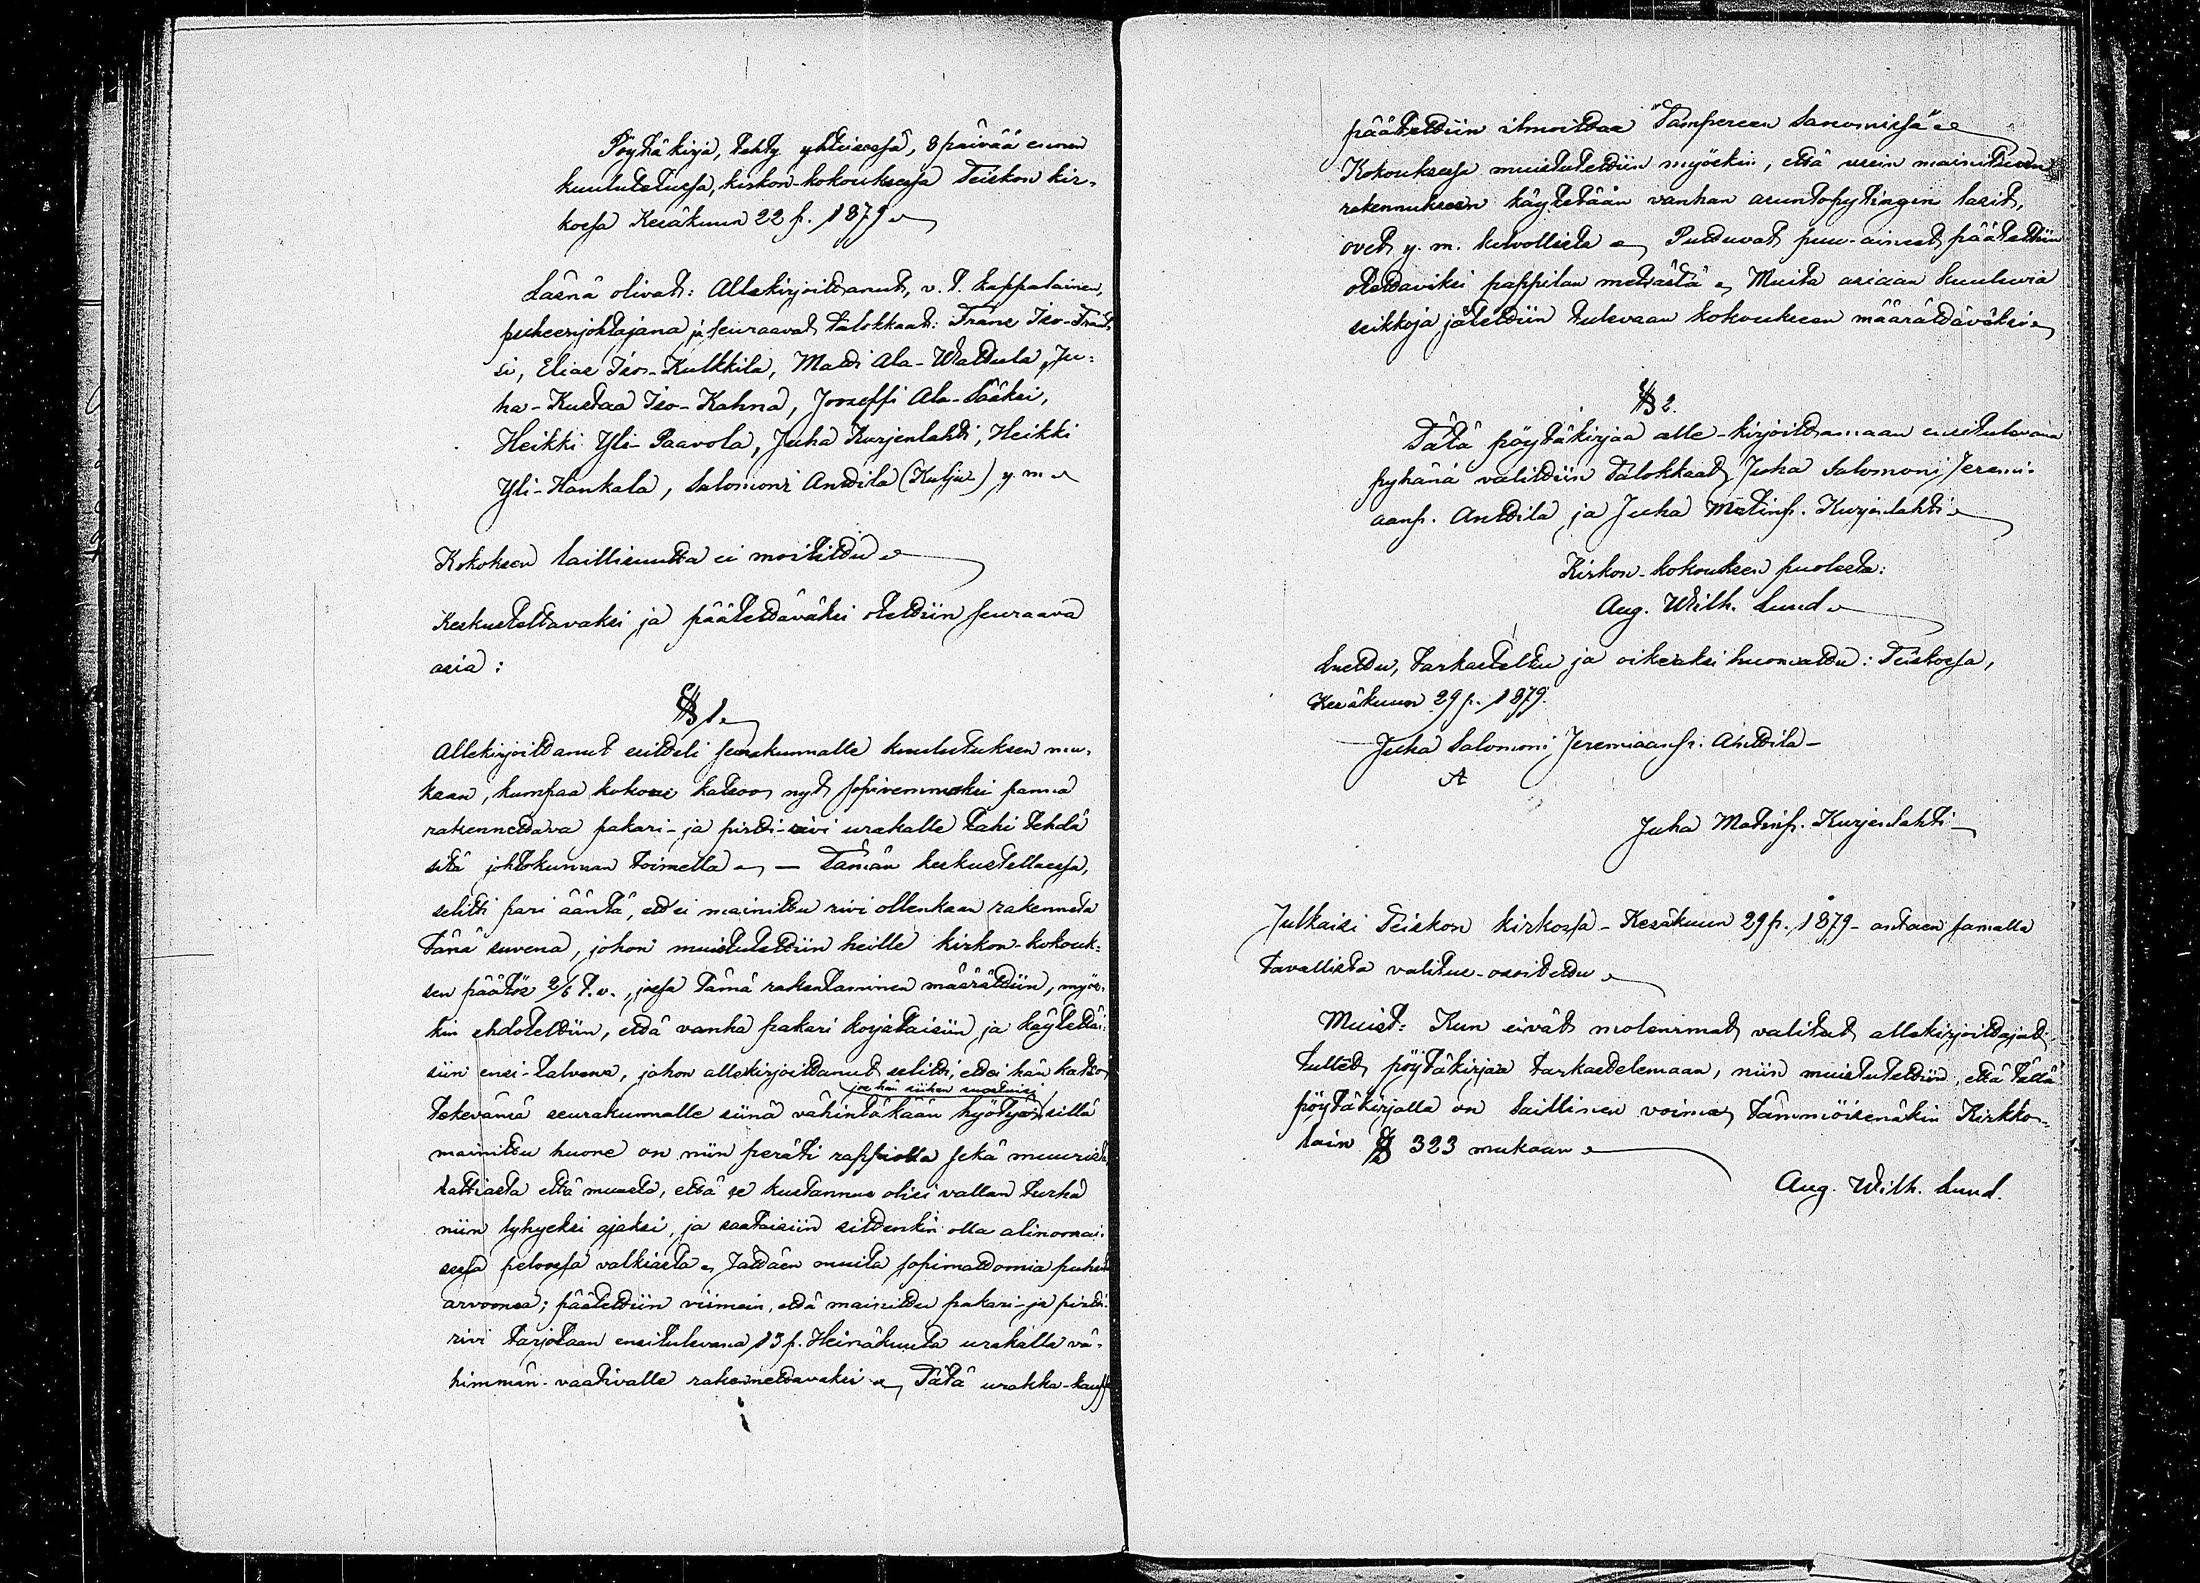 Pöytäkirja, tehty yhteisessä, 8 päivää ennen
kuulutetussa, kirkon-kokouksessa Teiskon kir-
kossa Kesäkuun 22 p. 1879.
Läsnä olivat: Allekirjoittanut, v. t. kappalainen,
puheenjohtajana ja seuraavat Talokkaat: Frans Iso-Trant-
si, Elias Iso-Kulkkila, Matti Ala-Wattula, Ju-
ha-Kustaa Iso-Kahna, Jooseffi Ala-Sääksi,
Heikki Yli-Paavola, Juha Kurjenlahti, Heikki
Yli-Hankala, Salomoni Anttila (Kulju-) y. m.
Kokoksen laillisuutta ei moitittu
Keskusteltavaksi ja päätettäväksi otettiin seuraava
asia:
§ 1.
Allekirjoittanut esitteli seurakunnalle kuulutuksen mu-
kaan, kumpaa kokous katsoo nyt sopivemmaksi panna
rakennettava pakari- ja pirtti-rivi urakalle tahi tehdä
sitä johtokunnan toimella. — Tämän keskustellaessa,
selitti pari ääntä, ett ei mainittu rivi ollenkaan rakenneta
tänä suvena, johon muistutettiin heille kirkon-kokouk-
sen päätös 2/6 t. v., jossa tämä rakentaminen määrättiin, myös-
kin ehdoteltiin, että vanha pakari korjataisiin ja käytettäi-
siin ensi-talvena, johon allekirjoittanut selitti, ettei hän katso
jos hän siihen suostuisi
tekevänsä seurakunnalle siinä vähintäkään hyötyä, sillä
mainittu huone on niin peräti rappiolla sekä muurista,
kattiasta että muusta, että se kustannus olisi vallan turha
niin lyhyeksi ajaksi, ja saataisiin sittenkin olla alinomai-
sessa pelvossa valkiasta. Jättäen muita sopimattomia puheita
arvoonsa; päätettiin viimein, että mainittu pakari- ja pirtti-
rivi tarjotaan ensitulevana 13 p. Heinäkuuta urakalla vä-
himmän-vaativalle rakennettavaksi. Tätä urakka-kauppa
päätettiin ilmoittaa "Tampereen Sanomissa".
Kokouksessa muistutettiin myöskin, että usein mainittuun
rakennukseen käytetään vanhan asuntopytingin lasit,
ovet y. m. kelvollista. Puuttuvat puu-aineet päätettiin
otettaviksi pappilan metsästä. Muita asiaan kuuluvia
seikkoja jätettiin tulevaan kokoukseen määrättäväksi.
§ 2.
Tätä pöytäkirjaa alle-kirjoittamaan ensitulevana
pyhänä valittiin Talokkaat Juha Salomoni Jeremi-
aanp. Anttila ja Juha Matinp. Kurjenlahti
Kirkon-kokouksen puolesta:
Aug. Wilh. Lund
Luettu, tarkasteltu ja oikeaksi huomattu: Teiskossa,
Kesäkuun 29 p. 1879.
Juha Salomoni Jeremiaanp. Anttila-
A
Juha Matinp. Kurjenlahti
Julkaisi Teiskon kirkossa - Kesäkuun 29 p. 1879 - antaen samalla
tavallista valitus-osoitettu
Muist: Kun eivät molemmat valitut allekirjoittajat
tulleet pöytäkirjaa tarkastelemaan, niin muistutettiin, että tällä
pöytäkirjalla on laillinen voima tämmöisenäkin Kirkko-
lain § 323 mukaan
Aug. Wilh. Lund.